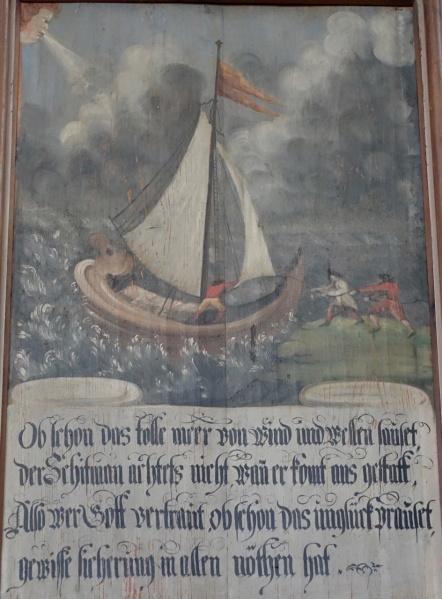 Ob schon das tolle meer von wind und wellen sauset,
der Schifman achtets nicht wan er komt ans gestatt,
Also wer Gott vertraut, ob schon das unglück brauset,
gewisse sicherung in allen nöthen hat.